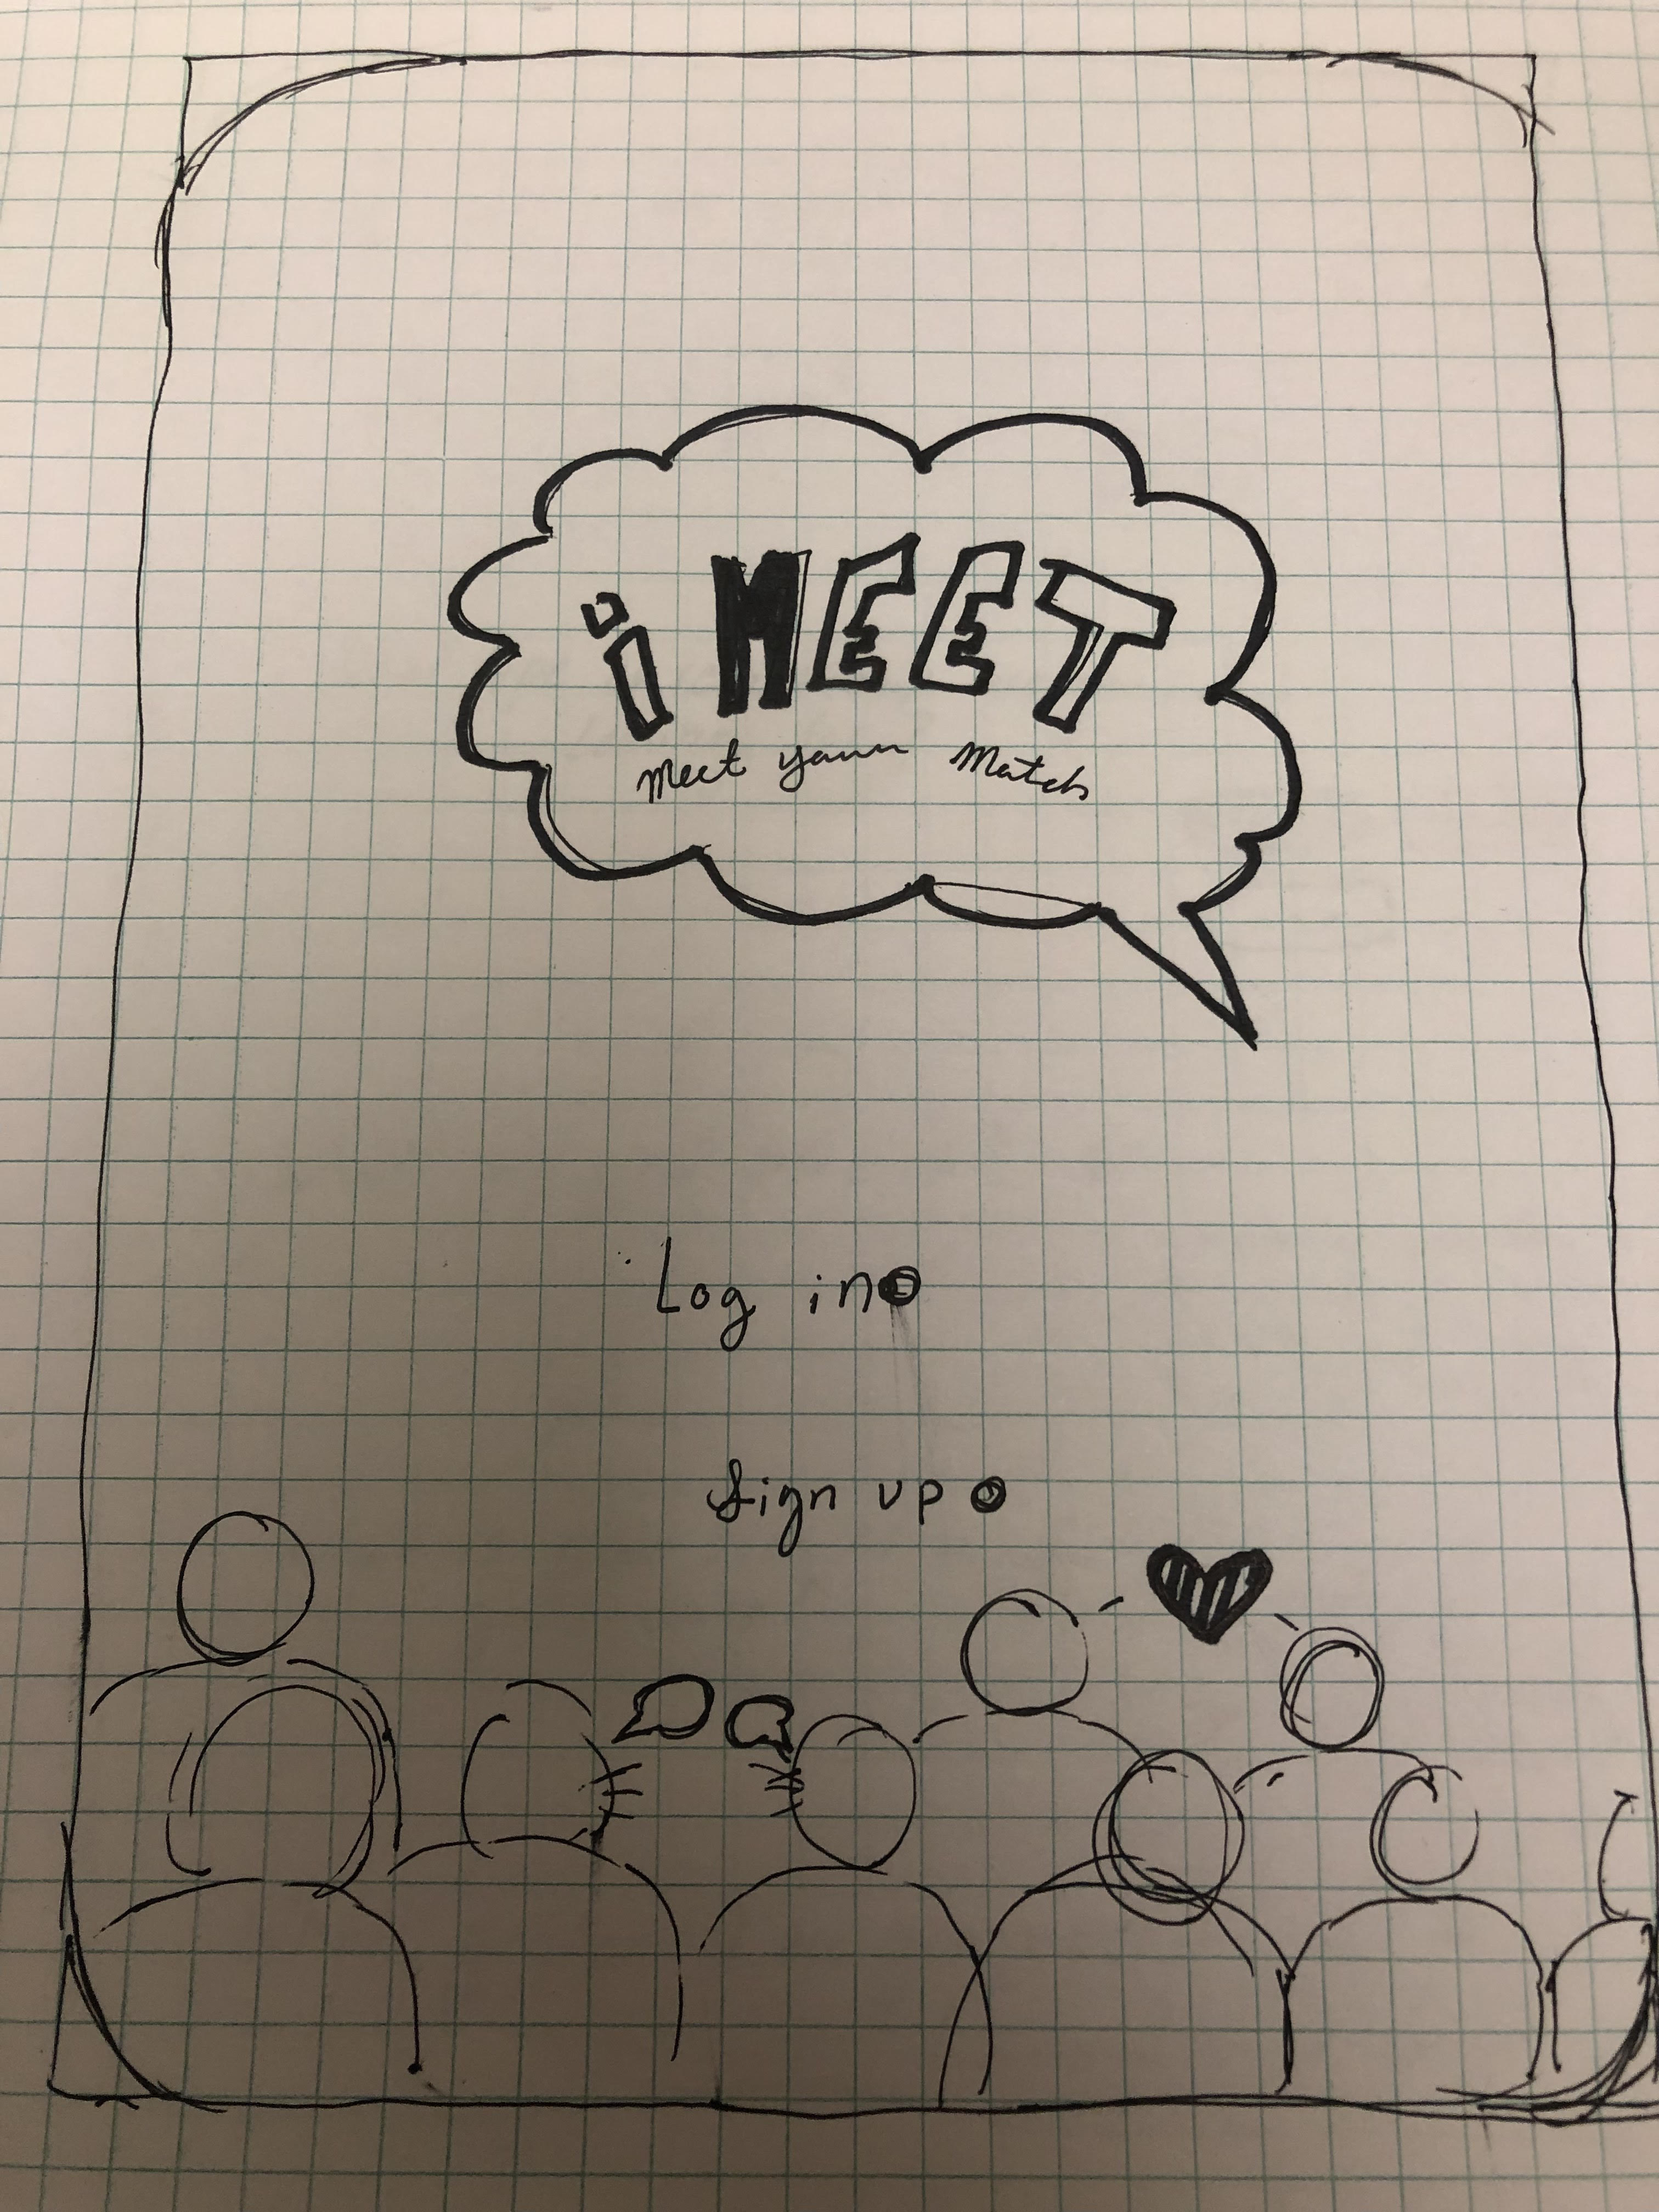 i MEET
Meet your Match
Log in
Sign up